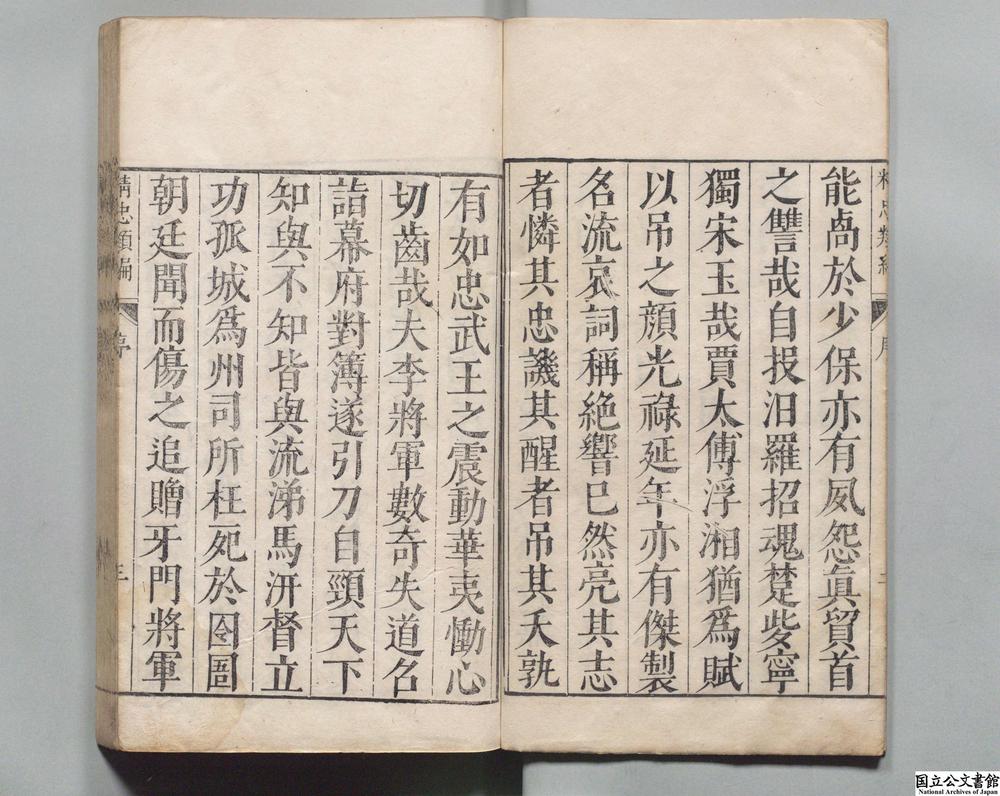 能卨於少保亦有夙怨眞貿首
之讐哉自投汨羅招魂楚些寧
獨宋玉哉賈太傅浮湘猶爲賦
以吊之顔光祿延年亦有傑製
名流哀詞稱絶響已然亮其志
者憐其忠譏其醒者吊其夭孰
有如忠武王之震動華夷慟心
切齒哉夫李將軍數奇失道名
詣幕府對簿遂引刀自頸天下
知與不知皆與流涕馬汧督立
功孤城爲州司所枉死於囹圄
朝廷聞而傷之追贈牙門將軍
精忠類編 序 三
国立公文書館
National Archives of Japan